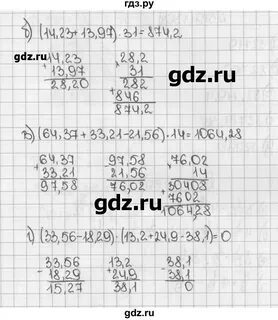 гдз.ру
б) (14,23+13,97)·31=874,2
14,23
+
13,97
28,20
28,2
31
282
+
846
874,2
в) (64,37+33,21-21,56)·14=1064,28
64,37
+
33,21
97,58
97,58
-
21,56
76,02
76,02
14
+
30408
7602
1064,28
г) (33,56-18,29)·(13,2+24,9-38,1)=0
33,56
-
18,29
15,27
13,2
+
24,9
38,1
38,1
-
38,1
0